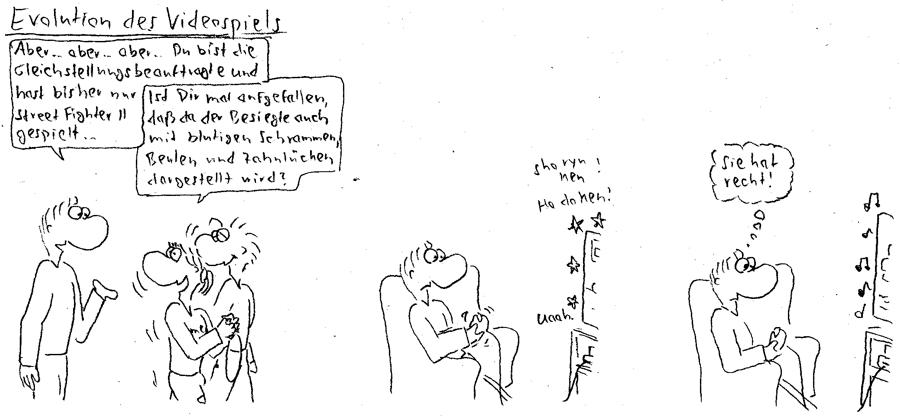 Evolution des Videospiels
Aber... aber... aber... Du bist die
Gleichstellungsbeauftragte und
hast bisher nur
Street Fighter II
gespielt...
Ist Dir mal aufgefallen,
daß da der Besiegte auch
mit blutigen Schrammen,
Beulen und Zahnlücken
dargestellt wird?
me
shoryu
ken!
Hadoken!
Uaah.
Sie hat
recht!